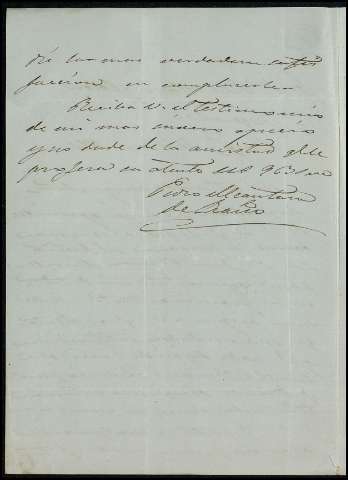 ré la mas verdadera satis
faccion en complacerle.
Reciba Vd el testimonio
de mi mas sincero aprecio
y no dude de la amistad q. le
profesa su atento
Pedro Alcantara
de